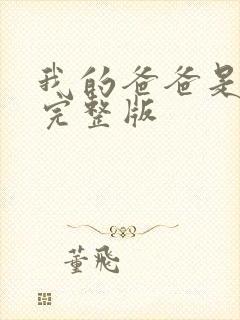 我的爸爸是
完整版
董飛